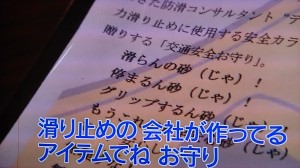 た防滑コンサルタント"デ
力滑り止めに使用する安全カラ
贈りする「交通安全お守り」。
滑らんの砂（じゃ）！
停まるんの砂（じゃ）！
グリップするん砂（じゃ）！
もうこれ
滑り止めの 会社が作ってる
アイテムでね お守り